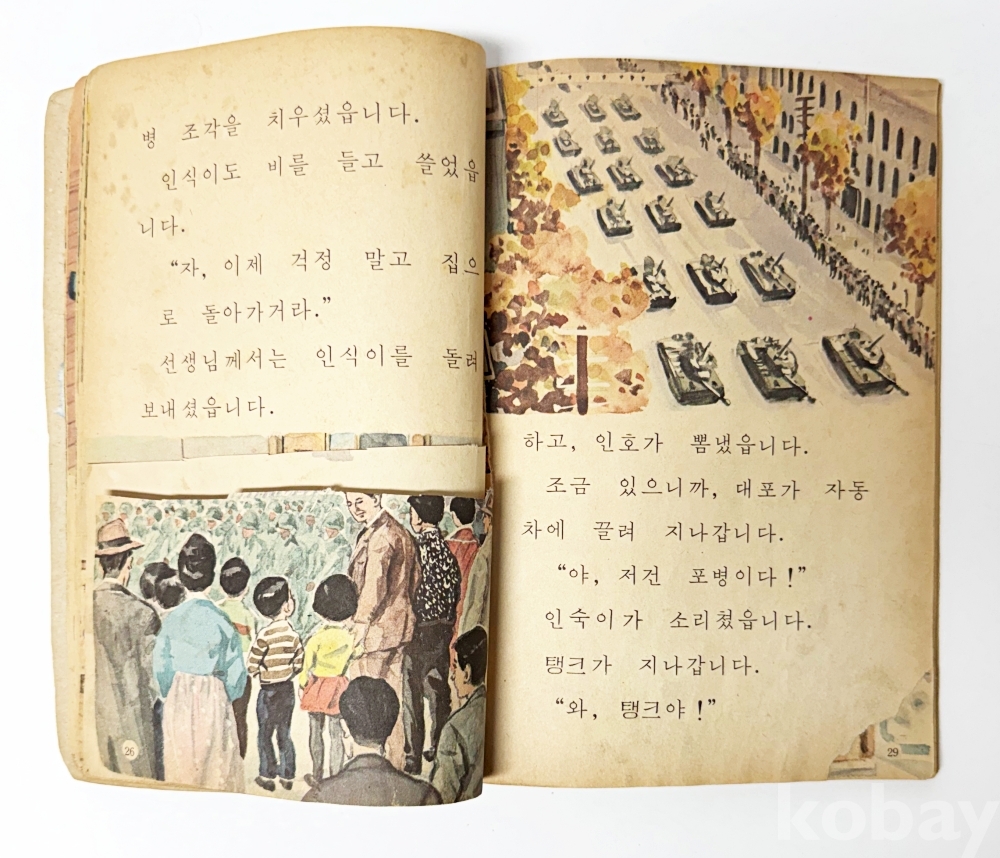 병 조각을 치우셨읍니다.
인식이도 비를 들고 쓸었읍
니다.
“자, 이제 걱정 말고 집으
로 돌아가거라.”
선생님께서는 인식이를 돌려
보내셨읍니다.
26
하고, 인호가 뽐냈읍니다.
조금 있으니까, 대포가 자동
차에 끌려 지나갑니다.
“야, 저건 포병이다!”
인숙이가 소리쳤읍니다.
탱크가 지나갑니다.
“와, 탱크야!”
29
kobay